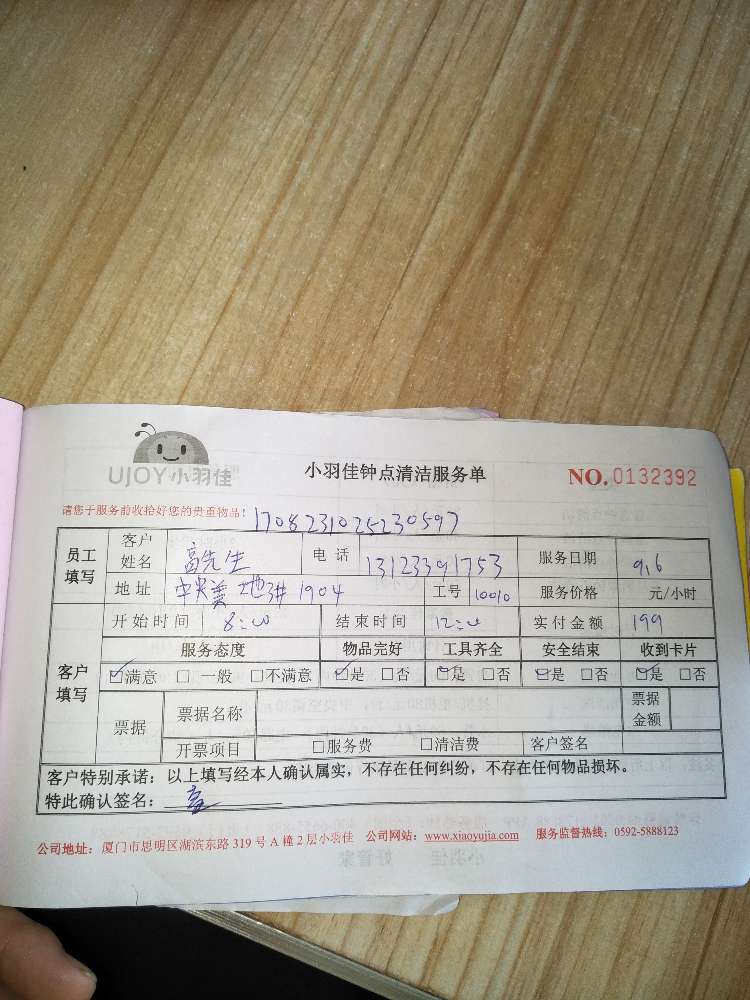 UJOY小羽佳
小羽佳钟点清洁服务单
NO. 0132392
请您于服务前收拾好您的贵重物品!
1708231025230597
员工填写 客户姓名 高先生 电话 13123391753 服务日期 9.6
地址 中央美地3# 1904 工号 10010 服务价格 元/小时
客户填写 开始时间 8:00 结束时间 12:00 实付金额 199
服务态度 物品完好 工具齐全 安全结束 收到卡片
☑满意 □一般 □不满意 ☑是 □否 ☑是 □否 ☑是 □否 ☑是 □否
票据 票据名称 票据金额
开票项目 □服务费 □清洁费 客户签名
客户特别承诺：以上填写经本人确认属实，不存在任何纠纷，不存在任何物品损坏。
特此确认签名： 高
公司地址：厦门市思明区湖滨东路 319 号 A 幢 2 层小羽佳 公司网站：www.xiaoyujia.com 服务监督热线：0592-5888123